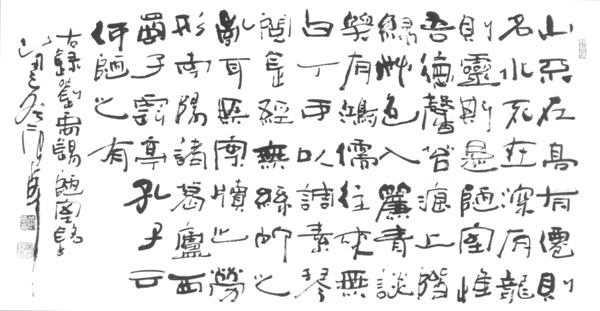 山不在高有僊則
名水不在深有龍
則靈斯是陋室惟
吾德馨苔痕上階
綠艸色入簾青談
笑有鴻儒往來無
白丁可以調素琴
閱金經無絲竹之
亂耳無案牘之勞
形南陽諸葛廬西
蜀子雲亭孔子云
何陋之有
右錄劉禹錫陋室銘